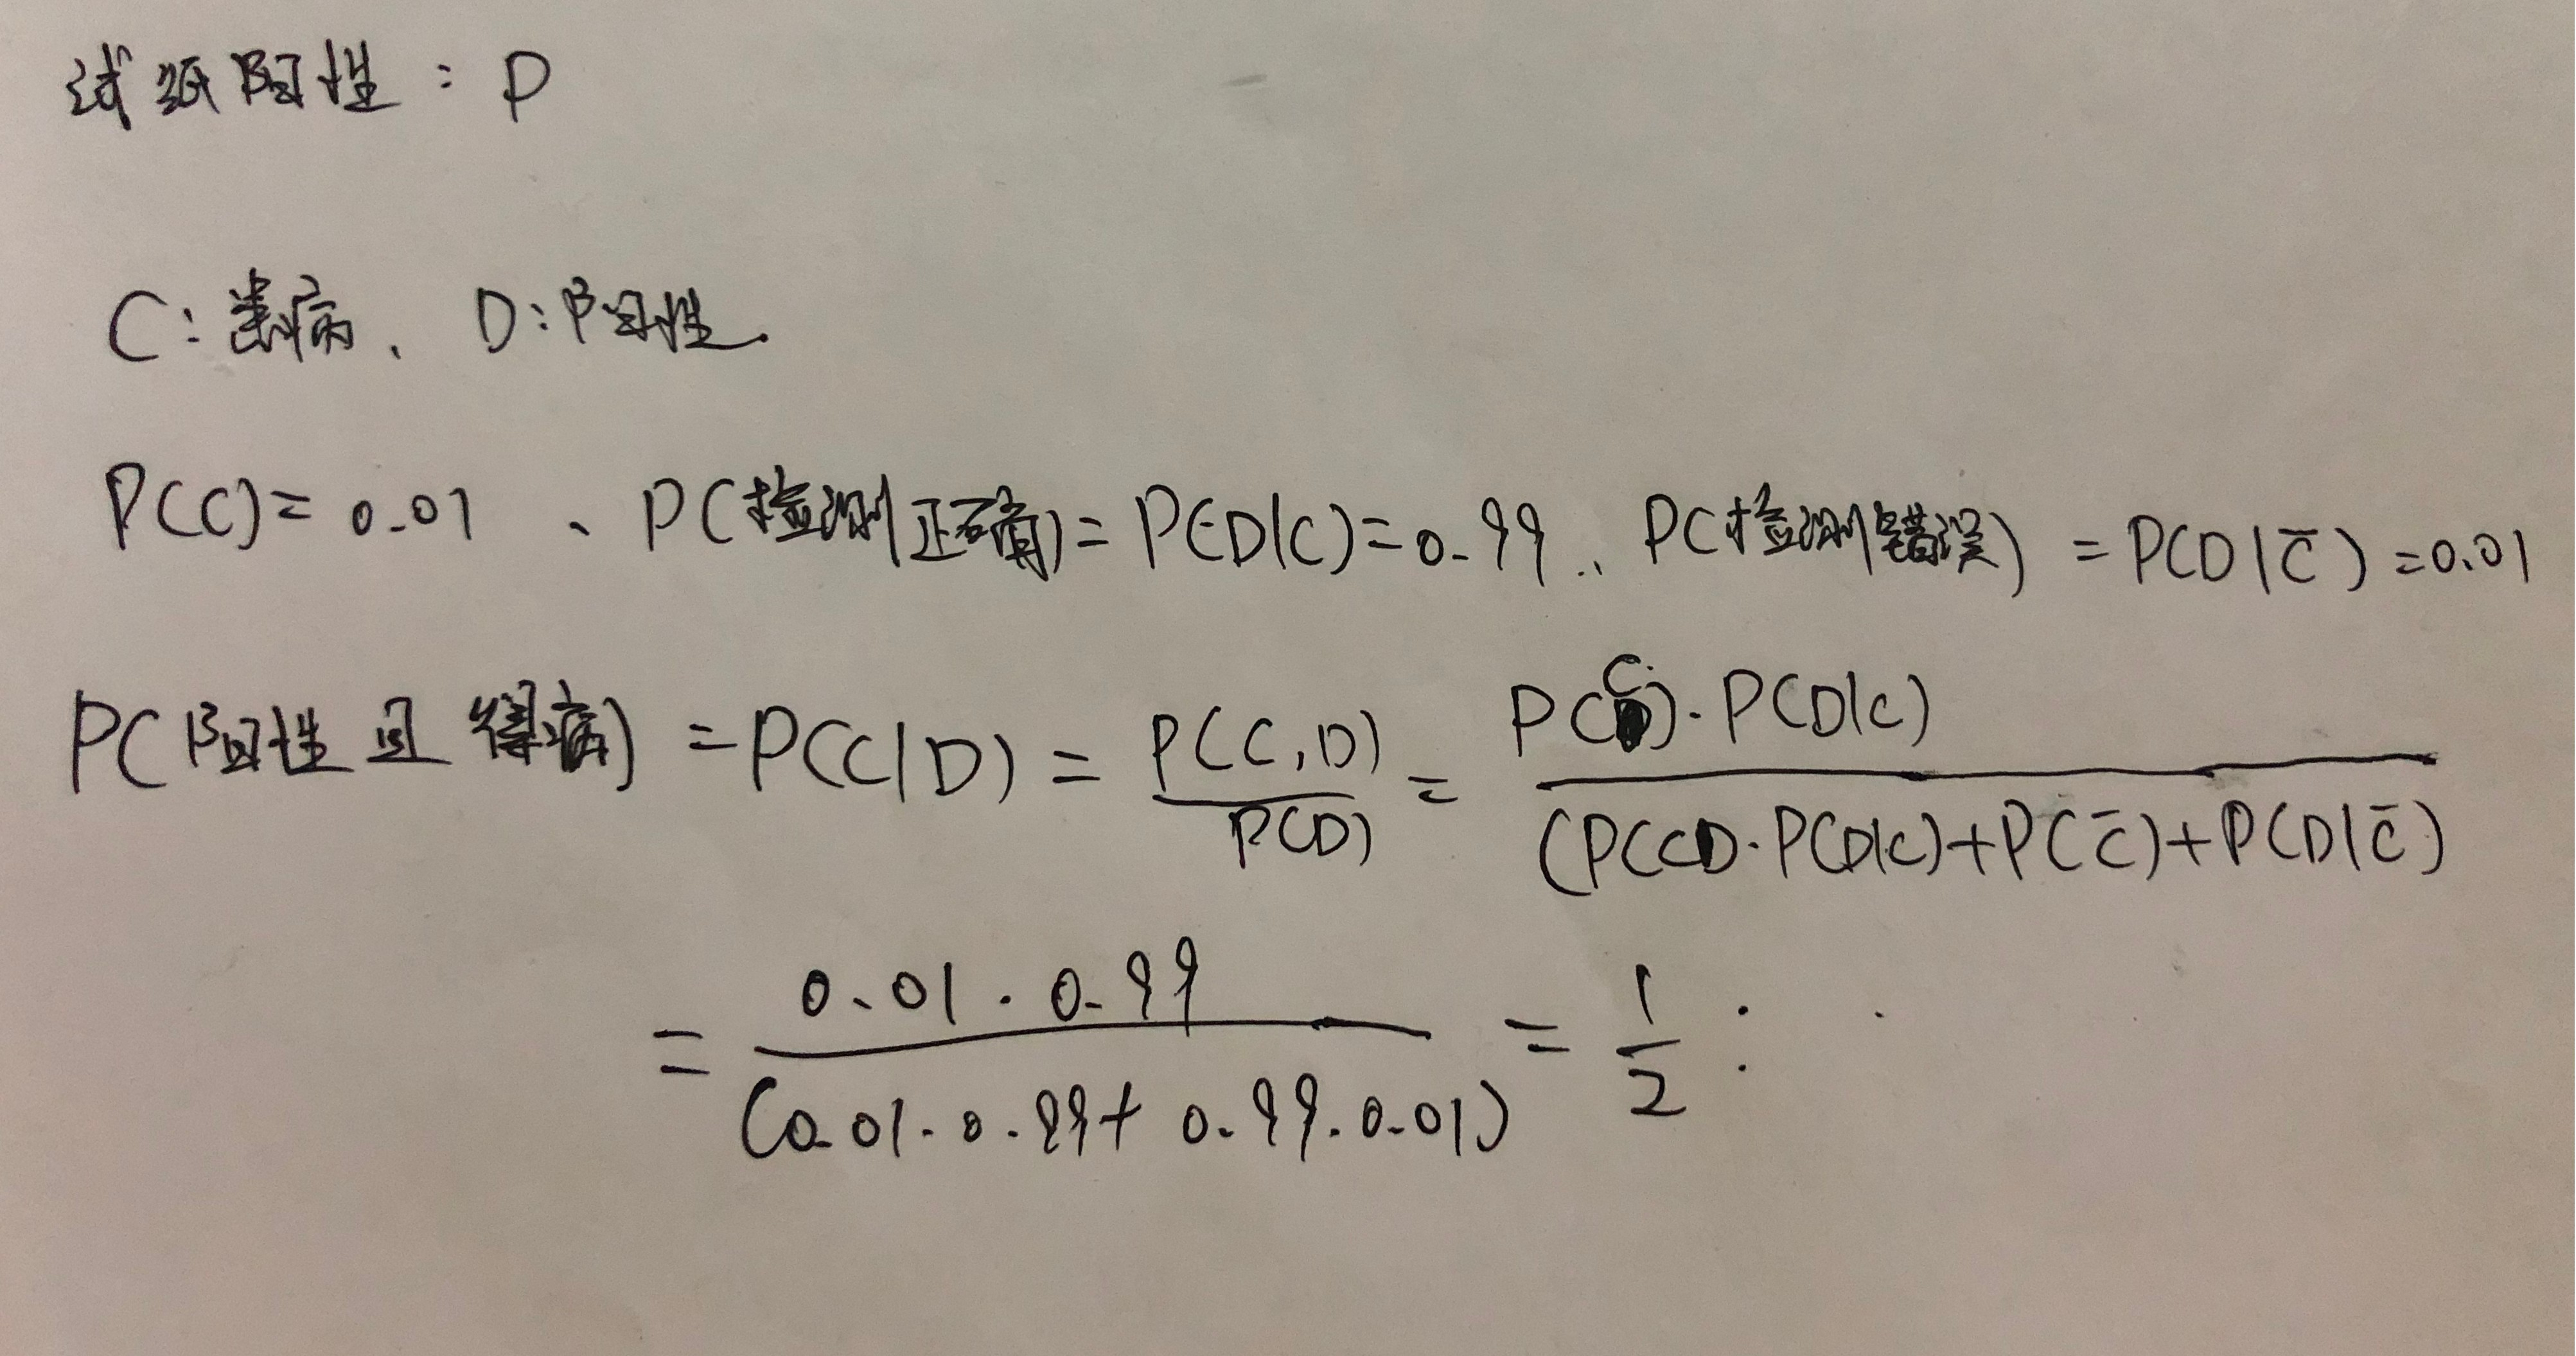 试纸阳性：D
C：患病、D：阳性.
P(C)=0.01、P(检测正确)=P(D|C)=0.99.、P(检测错误)=P(D|C̄)=0.01
P(阳性且得病)=P(C|D)=P(C,D)/P(D)=P(C)·P(D|C)/(P(C)·P(D|C)+P(C̄)+P(D|C̄)
=0.01·0.99/(0.01·0.99+0.99·0.01)=1/2: